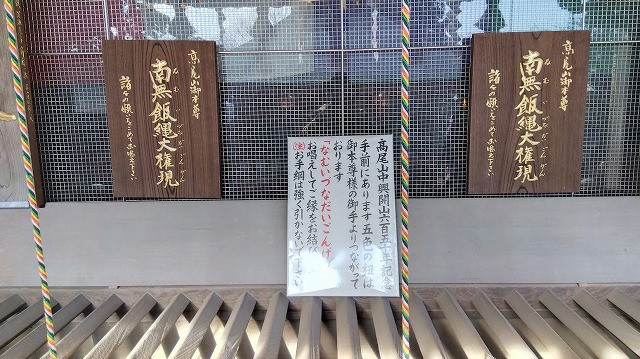 高尾山御本尊
南無飯縄大権現
なむいづなだいごんげん
諸々の願いをこめてお唱え下さい
高尾山中興開山六百五十年記念
手前にあります五色の紐は
御本尊様の御手よりつながって
おります
「なむいづなだいごんげ
お唱えしてご縁をお結び
㊟お手綱は強く引かないで下さい
高尾山御本尊
南無飯縄大権現
なむいづなだいごんげん
諸々の願いをこめてお唱え下さい